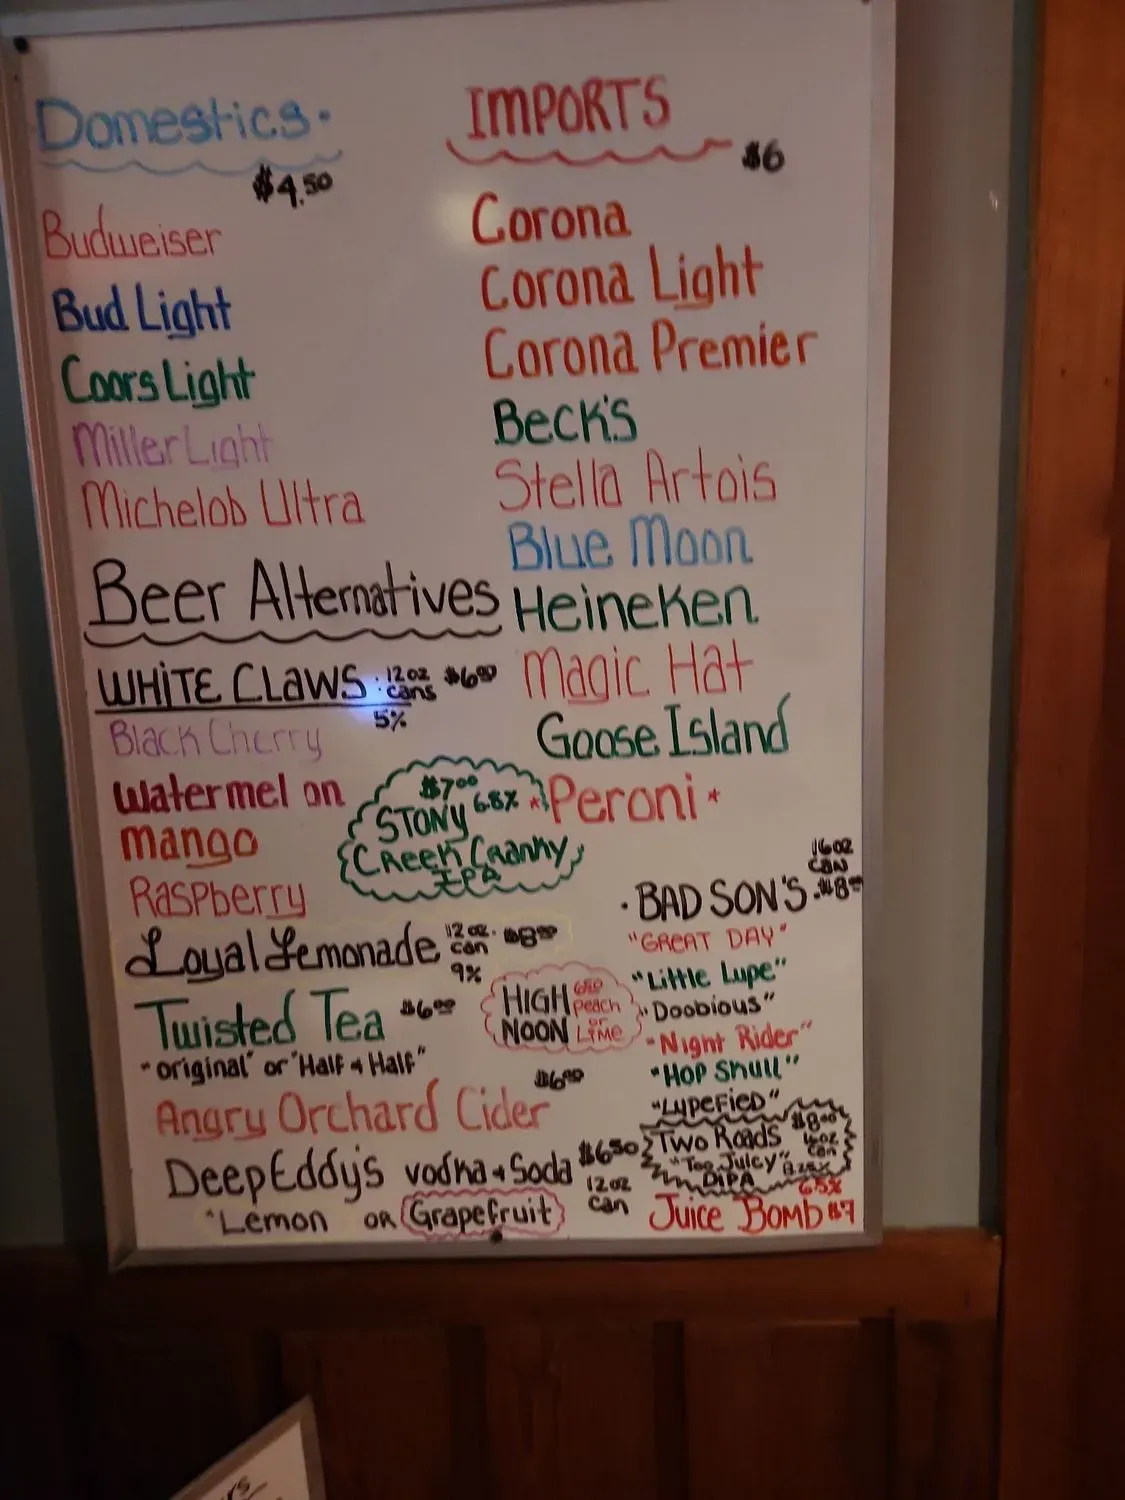 Domestics.
$4.50
Budweiser
Bud Light
Coors Light
Miller Light
Michelob Ultra
Beer Alternatives
WHITE CLAWS . 12oz cans $6.00
5%
Black Cherry
Watermelon
mango
Raspberry
Loyal Lemonade 12oz. can $8.00
9%
Twisted Tea $6.00
"original" or "Half & Half"
$6.00
Angry Orchard Cider
Deep Eddy's vodka & Soda $6.50
12oz can
"Lemon OR Grapefruit
$7.00
STONY 6.8%
Creek Cranky
IPA
HIGH NOON
6.50
Peach
or
LIME
IMPORTS
$6
Corona
Corona Light
Corona Premier
Beck's
Stella Artois
Blue Moon
Heineken
Magic Hat
Goose Island
*Peroni*
16oz
can
. BAD SON'S . $8.00
"GREAT DAY"
"Little Lupe"
"Doobious"
"Night Rider"
"Hop Skull"
"Lupefied"
Two Roads $8.00
"Too Juicy" 16oz can
DIPA
6.5%
Juice Bomb $7